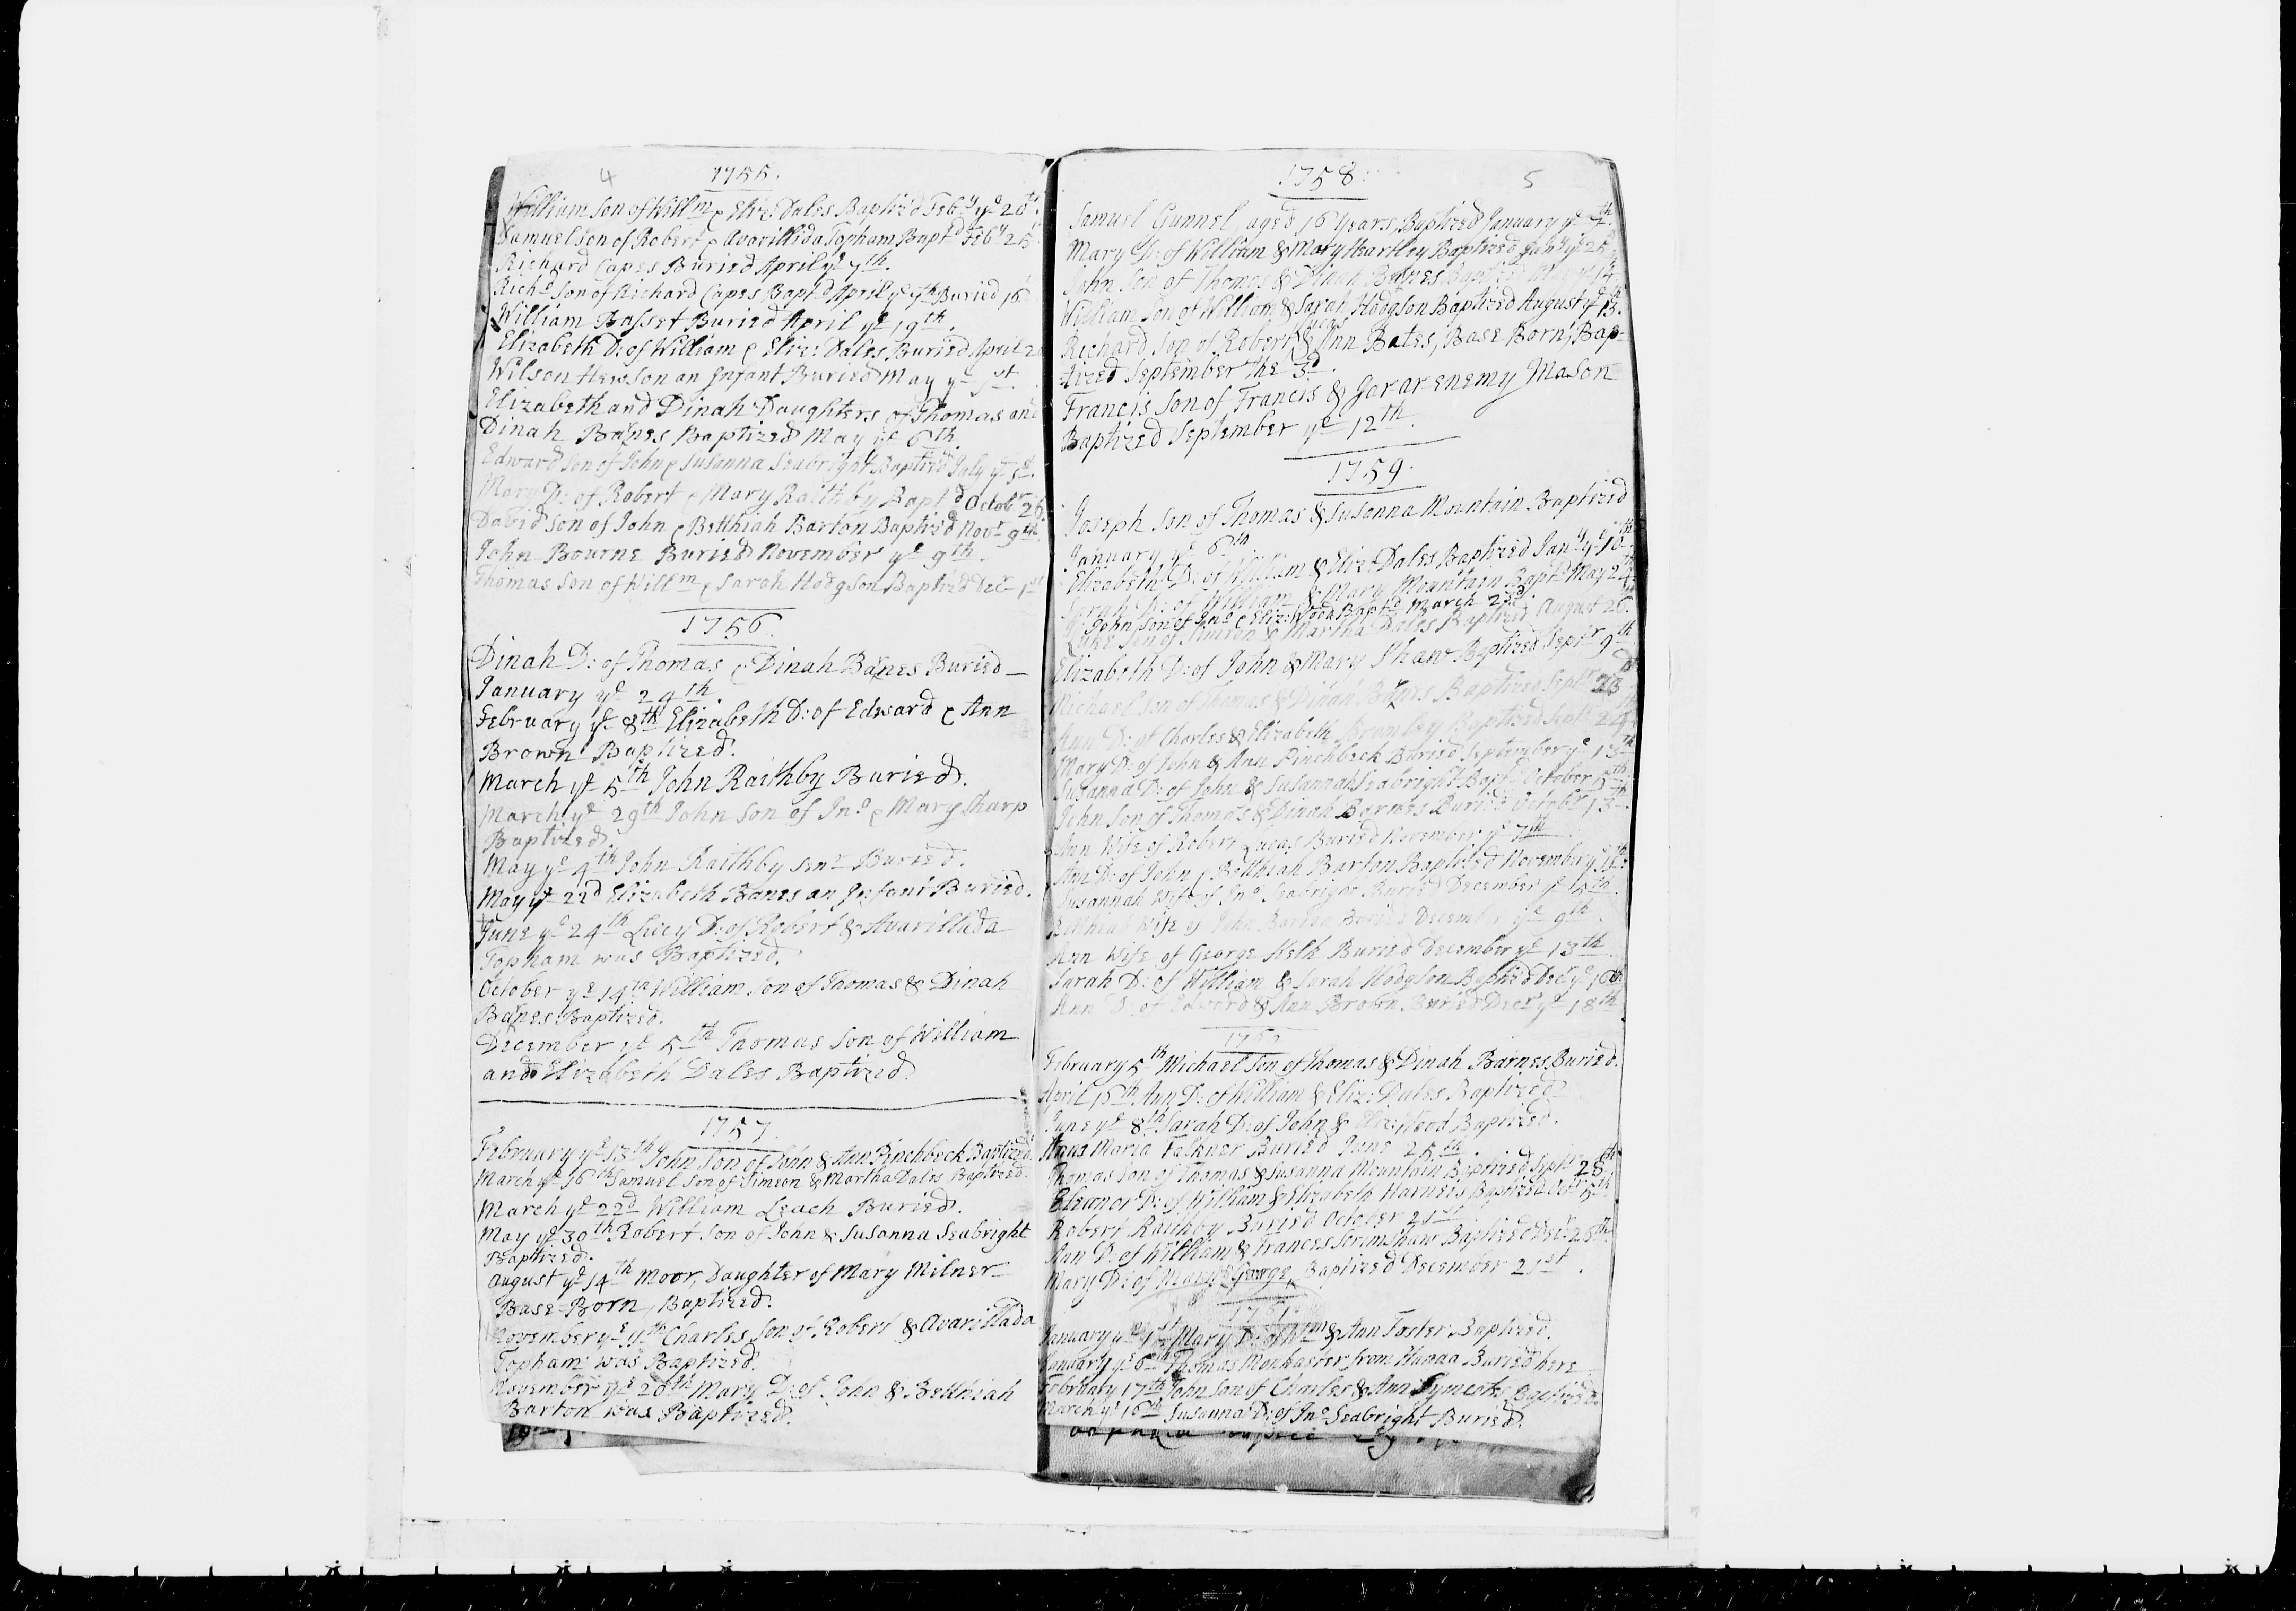 4
1755.
William Son of Will^m & Eliz: Dales Baptiz'd Feb^y y^e 20^th.
Samuel Son of Robert & Avarillida Topham Bapt^d Feb^y 25
Richard Capes Buried April y^e 7^th.
Rich^d Son of Richard Capes Bapt^d April y^e 7^th Buried 16
William Basset Buried April y^e 19^th.
Elizabeth D: of William & Eliz: Dales Buried April 2
Wilson Hewson an Infant Buried May y^e 1^st
Elizabeth and Dinah Daughters of Thomas and
Dinah Banes Baptized May y^e 6^th.
Edward Son of John & Susanna Seabright Baptiz'd July y^e
Mary D: of Robert & Mary Raithby Bapt^d Octob^r 26
David Son of John & Bethiah Barton Baptiz'd Nov^r 9^th
John Bourne Buried November y^e 9^th.
Thomas Son of Will^m & Sarah Hodgson Baptiz'd Dec^r 1^st
1756.
Dinah D: of Thomas & Dinah Banes Buried
January y^e 24^th.
February y^e 8^th Elizabeth D: of Edward & Ann
Brown Baptized.
March y^e 5^th John Raithby Buried.
March y^e 29^th John Son of Jn^o & Mary Sharp
Baptized.
May y^e 4^th John Raithby Sen^r Buried.
May y^e 22^d Elizabeth Banes an Infant Buried.
June y^e 24^th Lucy D: of Robert & Avarillada
Topham was Baptized.
October y^e 14^th William Son of Thomas & Dinah
Banes Baptized.
December y^e 5^th Thomas Son of William
and Elizabeth Dales Baptized
1757.
February y^e 13^th John Son of John & Ann Pinchbeck Baptized
March y^e 16^th Samuel Son of Simeon & Martha Dales Baptized.
March y^e 22^d William Leach Buried.
May y^e 30^th Robert Son of John & Susanna Seabright
Baptized.
August y^e 14^th Moor, Daughter of Mary Milner
Base-Born, Baptized.
November y^e 7^th Charles Son of Robert & Avarillada
Topham was Baptized.
November y^e 20^th Mary D: of John & Bethiah
Barton was Baptized.
5
1758.
Samuel Gunnel, aged 16 Years, Baptized January y^e
Mary D: of William & Mary Heartley Baptized Jan^y y^e 25
John Son of Thomas & Dinah Banes
William Son of William & Sarah Hodgson Baptized August y^e 13.
Lucas
Richard Son of Robert & Ann Bates, Base Born, Bap-
tized September the 3^d.
Francis Son of Francis & Gararenemy Mason
Baptized September y^e 12^th.
1759.
Joseph Son of Thomas & Susanna Mountain Baptized
January y^e 6^th
Elizabeth D: of William & Eliz: Dales Baptized Jan^y y^e 10
Sarah D: of William & Mary Mountain Bapt^d May 24
John Son of Jn^o & Eliz: Wood Bapt^d March 23^d.
Luke Son of Simeon & Martha Dales Baptized August 26
Elizabeth D: of John & Mary Shaw Baptized Sept^r 9^th
Michael Son of Thomas & Dinah Banes Baptized Sept^r 23
Ann D: of Charles & Elizabeth Bromley Baptized Sept^r 24
Mary D: of John & Ann Pinchbeck Buried September y^e 13^th
Susanna D: of John & Susannah Seabright Bapt^d October 5^th
John Son of Thomas & Dinah Barnes Buried Octob^r 13^th
Ann Wife of Robert Lucas Buried November y^e 7^th
Ann D: of John & Bethiah Barton Baptized November y^e
Susannah Wife of Jn^o Seabright Buried December y^e 5^th.
Bethiah Wife of John Barton Buried December y^e 9^th.
Ann Wife of George Kelk Buried December y^e 13^th
Sarah D: of William & Sarah Hodgson Baptiz'd Dec^r y^e 16
Ann D: of Edward & Ann Brown Buried Dec^r y^e 18^th
February 5^th Michael Son of Thomas & Dinah Barnes Buried.
April 16^th Ann D: of William & Eliz: Dales Baptized
June y^e 8^th Sarah D: of John & Eliz: Wood Baptized.
Anna Maria Falkner Buried June 25^th
Thomas Son of Thomas & Susanna Mountain Baptized Sept^r 28^th
Eleanor D: of William & Elizabeth Harneis Baptized Oct^r
Robert Raithby Buried October 21^st
Ann D: of William & Frances Scrimshaw Baptized Dec^r 26^th
Mary D: of Mary George Baptized December 21^st.
1761.
January y^e 1^st Mary D: of W^m & Ann Foster Baptized.
January y^e 6^th Thomas Monkaster from Hanna Buried here
February 17^th John Son of Charles & Ann Baptized.
March y^e 16^th Susanna D: of Jn^o Seabright Buried.